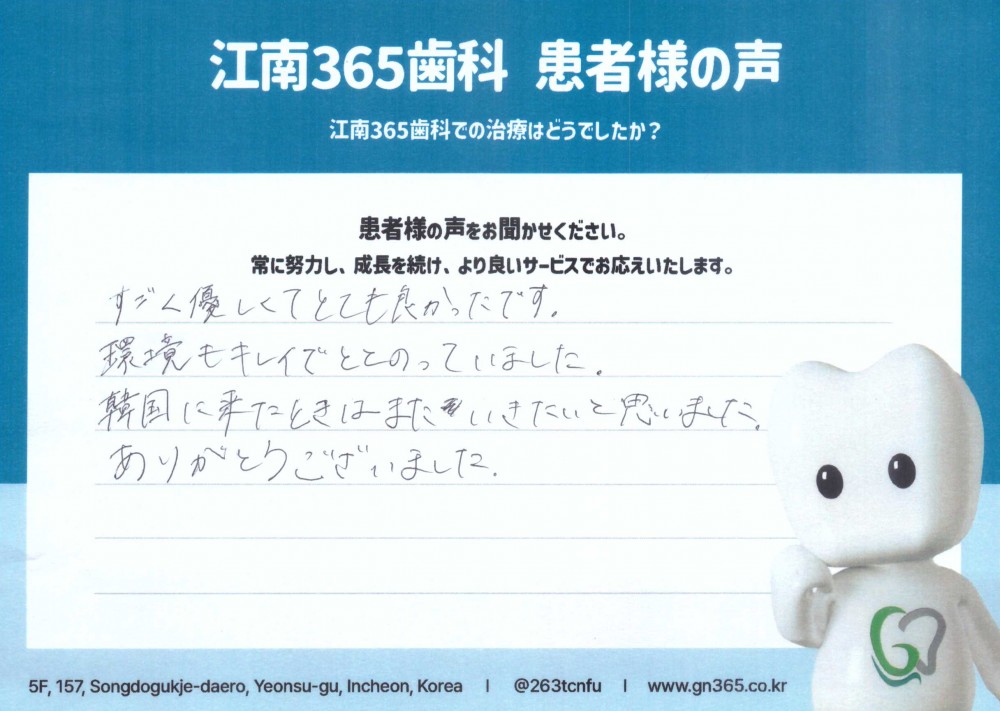 江南365歯科 患者様の声
江南365歯科での治療はどうでしたか？
患者様の声をお聞かせください。
常に努力し、成長を続け、より良いサービスでお応えいたします。
すごく優しくてとても良かったです。
環境もキレイでととのっていました。
韓国に来たときはまたいきたいと思いました。
ありがとうございました。
5F, 157, Songdogukje-daero, Yeonsu-gu, Incheon, Korea | @263tcnfu | www.gn365.co.kr